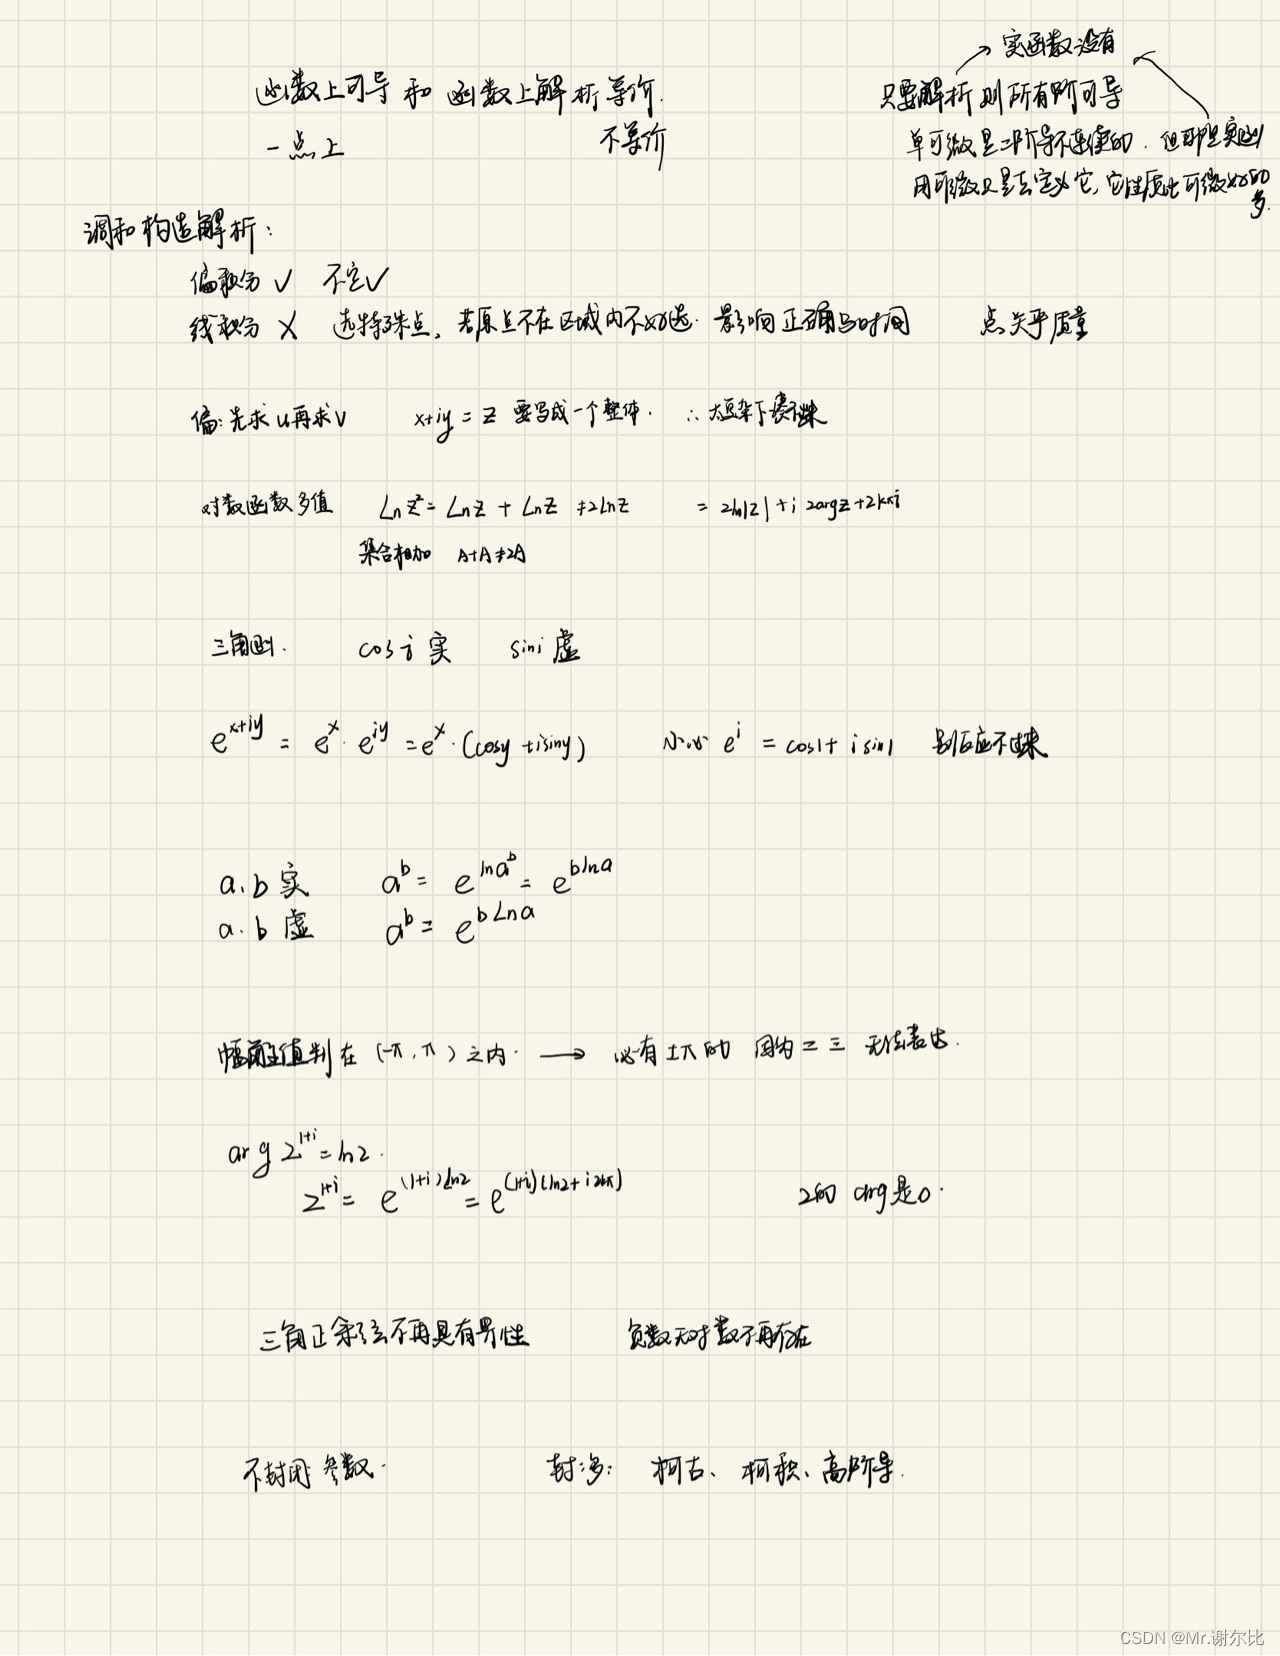 实函数没有
函数上可导 和 函数上解析等价.
只要解析则所有阶可导
一点上 不等价
单可微是二阶导不连续的. 但那是实函
用可微只是去定义它, 它性质比可微好的多.
调和构造解析:
偏积分 ✓ 不定✓
线积分 X 选特殊点, 若原点不在区域内不好选. 影响正确与时间 点关乎质量
偏: 先求u再求v x+iy = z 要写成一个整体. ∴太复杂下凑不来
对数函数多值 Ln z² = Ln z + Ln z ≠2Ln z = 2ln|z| + i 2argz + 2kπi
集合相加 A+A≠2A
三角函. cos i 实 sin i 虚
e^{x+iy} = e^x · e^{iy} = e^x · (cosy + isiny) 小心 e^i = cos1 + i sin1 别反应不过来
a.b 实 a^b = e^{ln a^b} = e^{b ln a}
a.b 虚 a^b = e^{b Ln a}
幅角主值判在 (-π, π) 之内. → 必有±π的 因为二三 无法表达.
arg 2^{1+i} = ln2.
2^{1+i} = e^{(1+i)Ln2} = e^{(1+i)(ln2+i2kπ)} 2的 arg是0.
三角正余弦不再具有界性 负数无对数不再存在
不封闭: 参数. 封闭: 柯古、柯积、高阶导.
CSDN @Mr.谢尔比